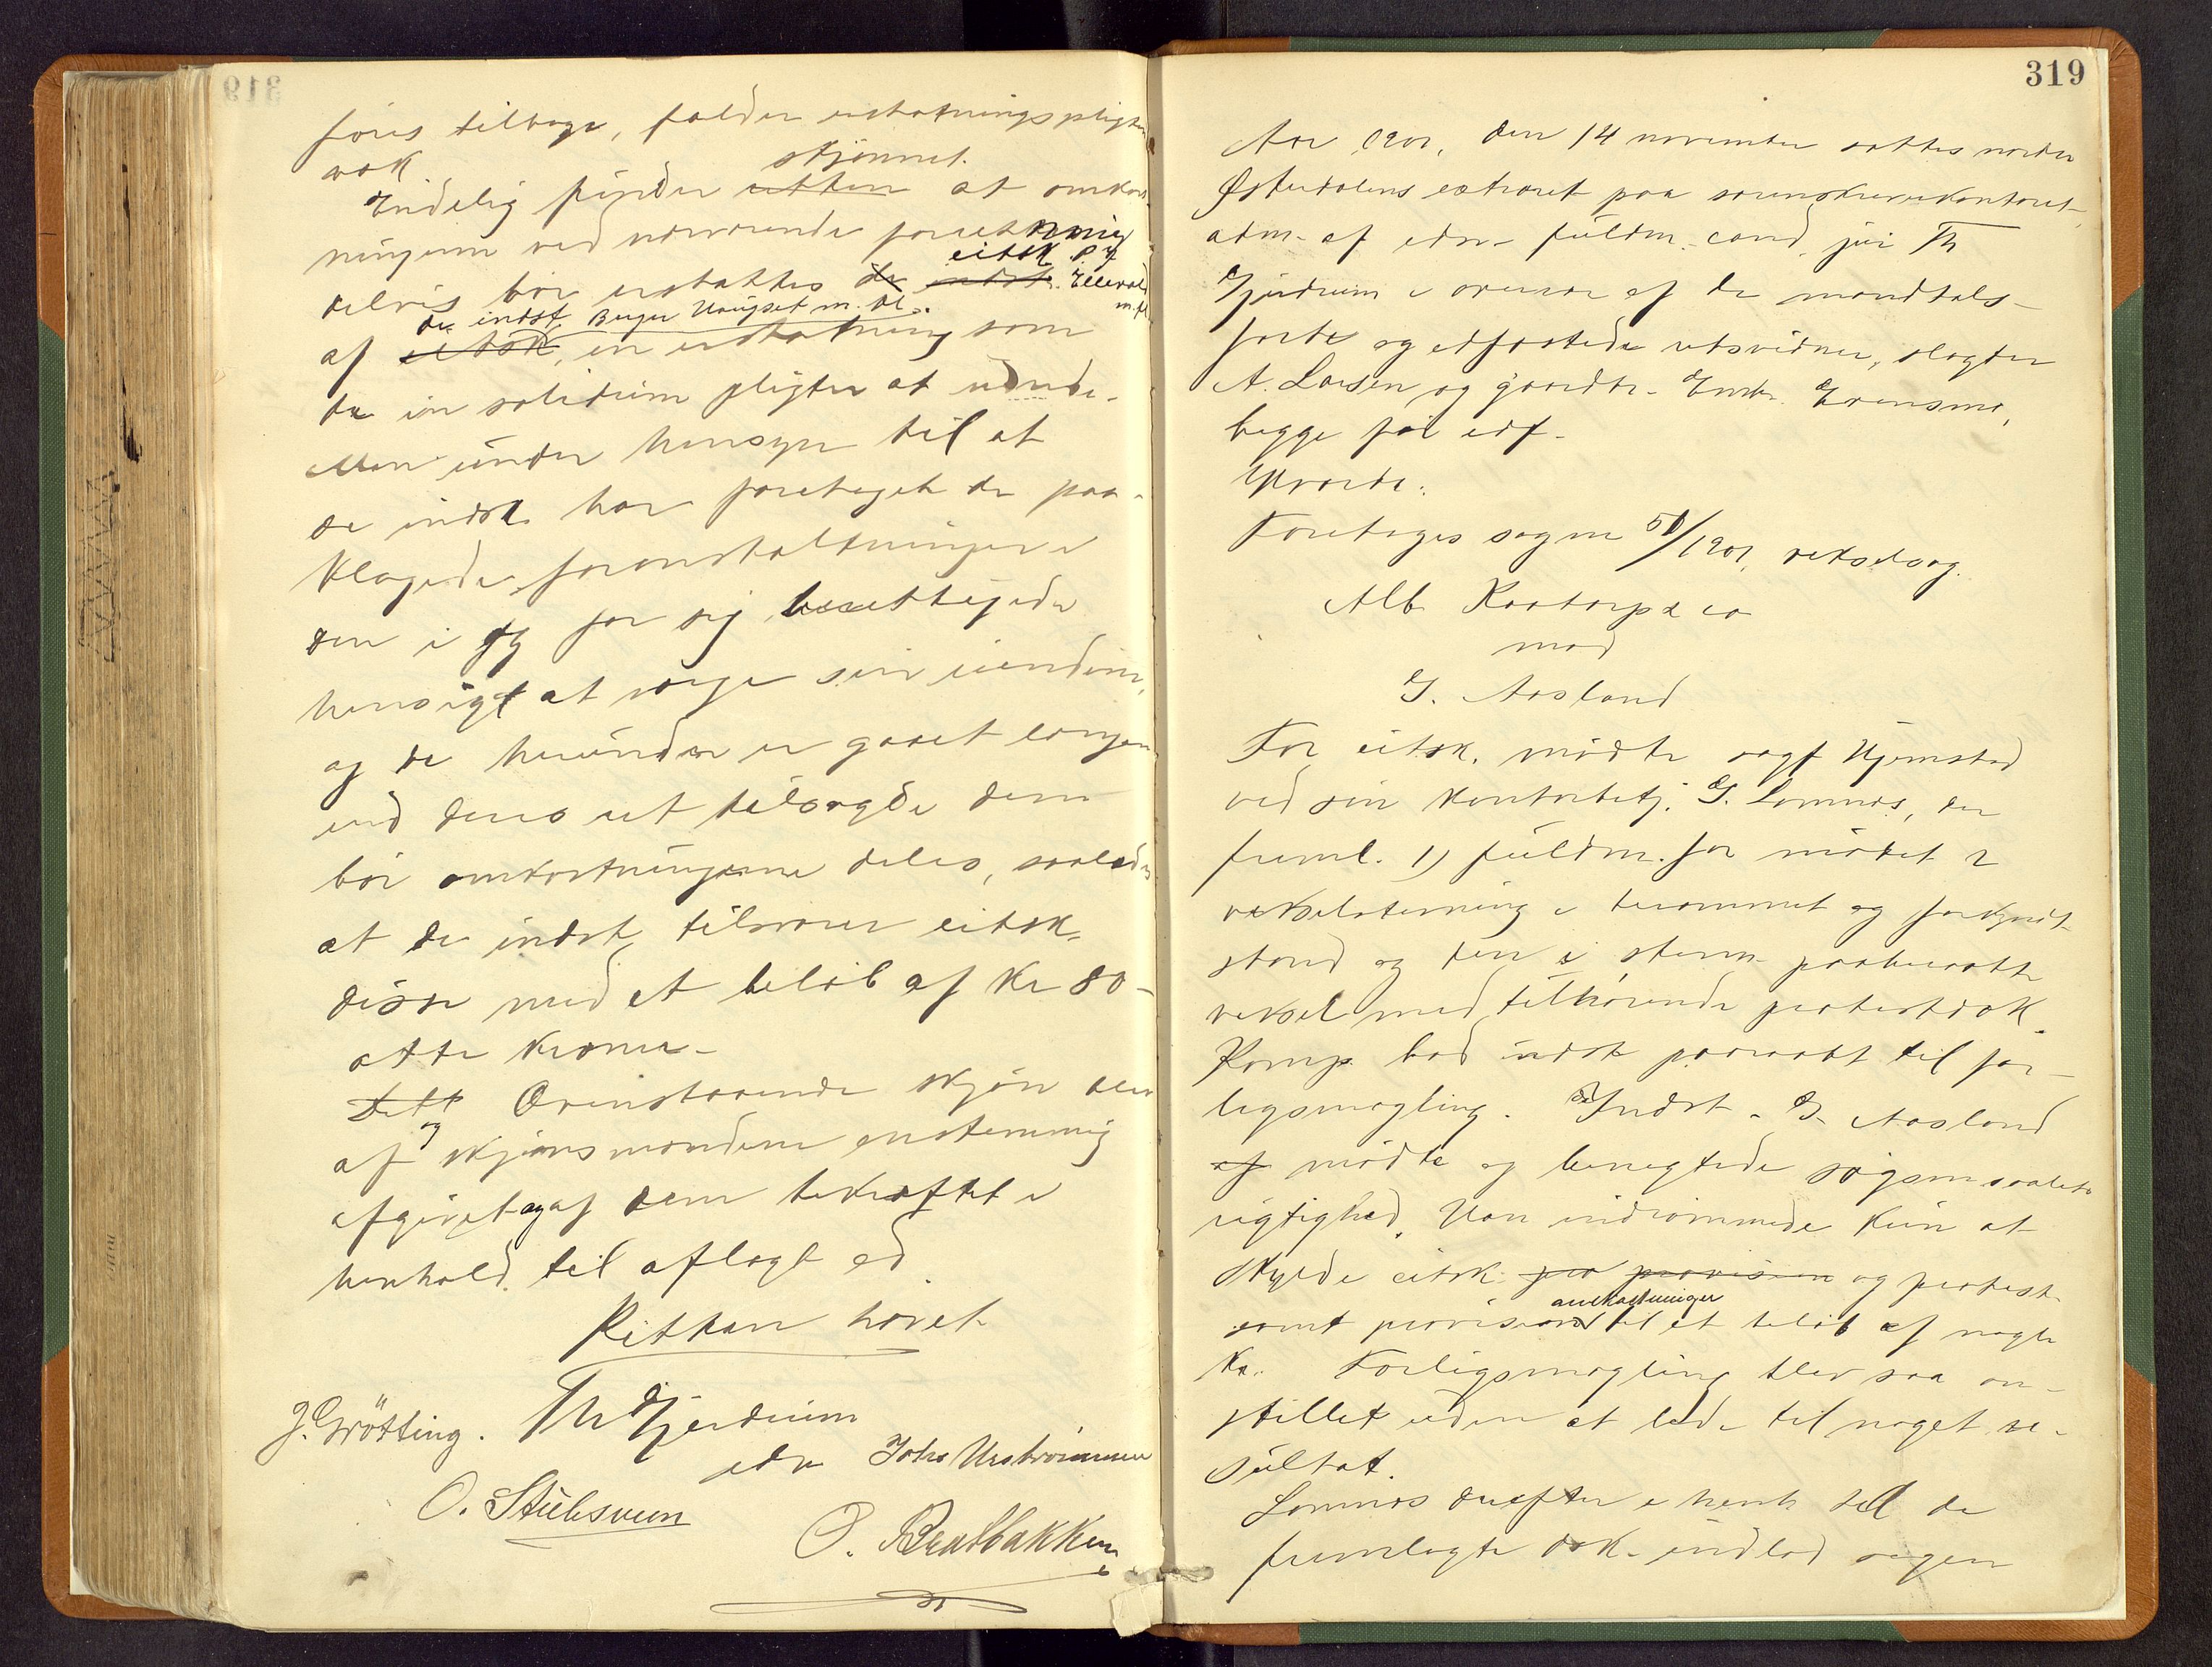 føres tilbage, falder erstatningspligten
væk.
Endelig finder skjønnet at omkost-
ningerne ved nærværende forretning
delvis bør erstattes citsk. P. Y. Ellevold m. fl.
af de indst. Birger Haugset m. fl. en erstatning som
de in solidum pligter at udrede.
Men under hensyn til at
de indst. har foretaget de paa-
klagede foranstaltninger i
den i og for sig berettigede
hensigt at værge sin eiendom,
og de herunder er gaaet længer
end deres ret tilsagde dem
bør omkostningerne deles, saaledes
at de indst. tilsvarer citsk.
disse med et beløb af Kr 80-
otti kroner-
Ovenstaaende skjøn blev
af skjønsmændene enstemmig
afgivet og af dem bekræftet i
henhold til aflagt ed.
Retten hævet.
J. Grötting. Th Gjerdrum
edsv Johs Utistrømmen
O. Stubsveen
O. Bratbakken
319
Aar 1901, den 14 november sattes nordre
Østerdalens extraret paa sorenskriverkontoret
adm. af edsv. fuldm. cand. jur. Th
Gjerdrum i overvær af de mandtals-
førte og edfæstede retsvidner, slagter
A. Larsen og gaardbr. Embr. Evensmo,
begge før edf.
Hvorda:
Foretages sag no 51/1901, vekselsag.
Alb. Kaatorp & co
mod
G. Aasland
For citsk. mødte sagf Hjemstad
ved sin kontorbetj. G. Lomnæs, der
freml. 1) fuldm. for mødet 2
vekselstevning i berammet og forkyndt
stand og den i stevn. paaberaabte
veksel med tilhørende protestdok.
Komp. bad indst. paaraabt til for-
ligsmægling. Indst. G. Aasland
mødte og benegtede søgsmaalets
rigtighed. Han indrømmede kun at
skylde citsk. og protest
samt provision omkostninger til et beløb af nogle
Kr. Forligsmægling blev saa an-
stillet uden at lede til noget re-
sultat.
Lomnæs derefter i henh. til de
fremlagte dok. indlod sagen